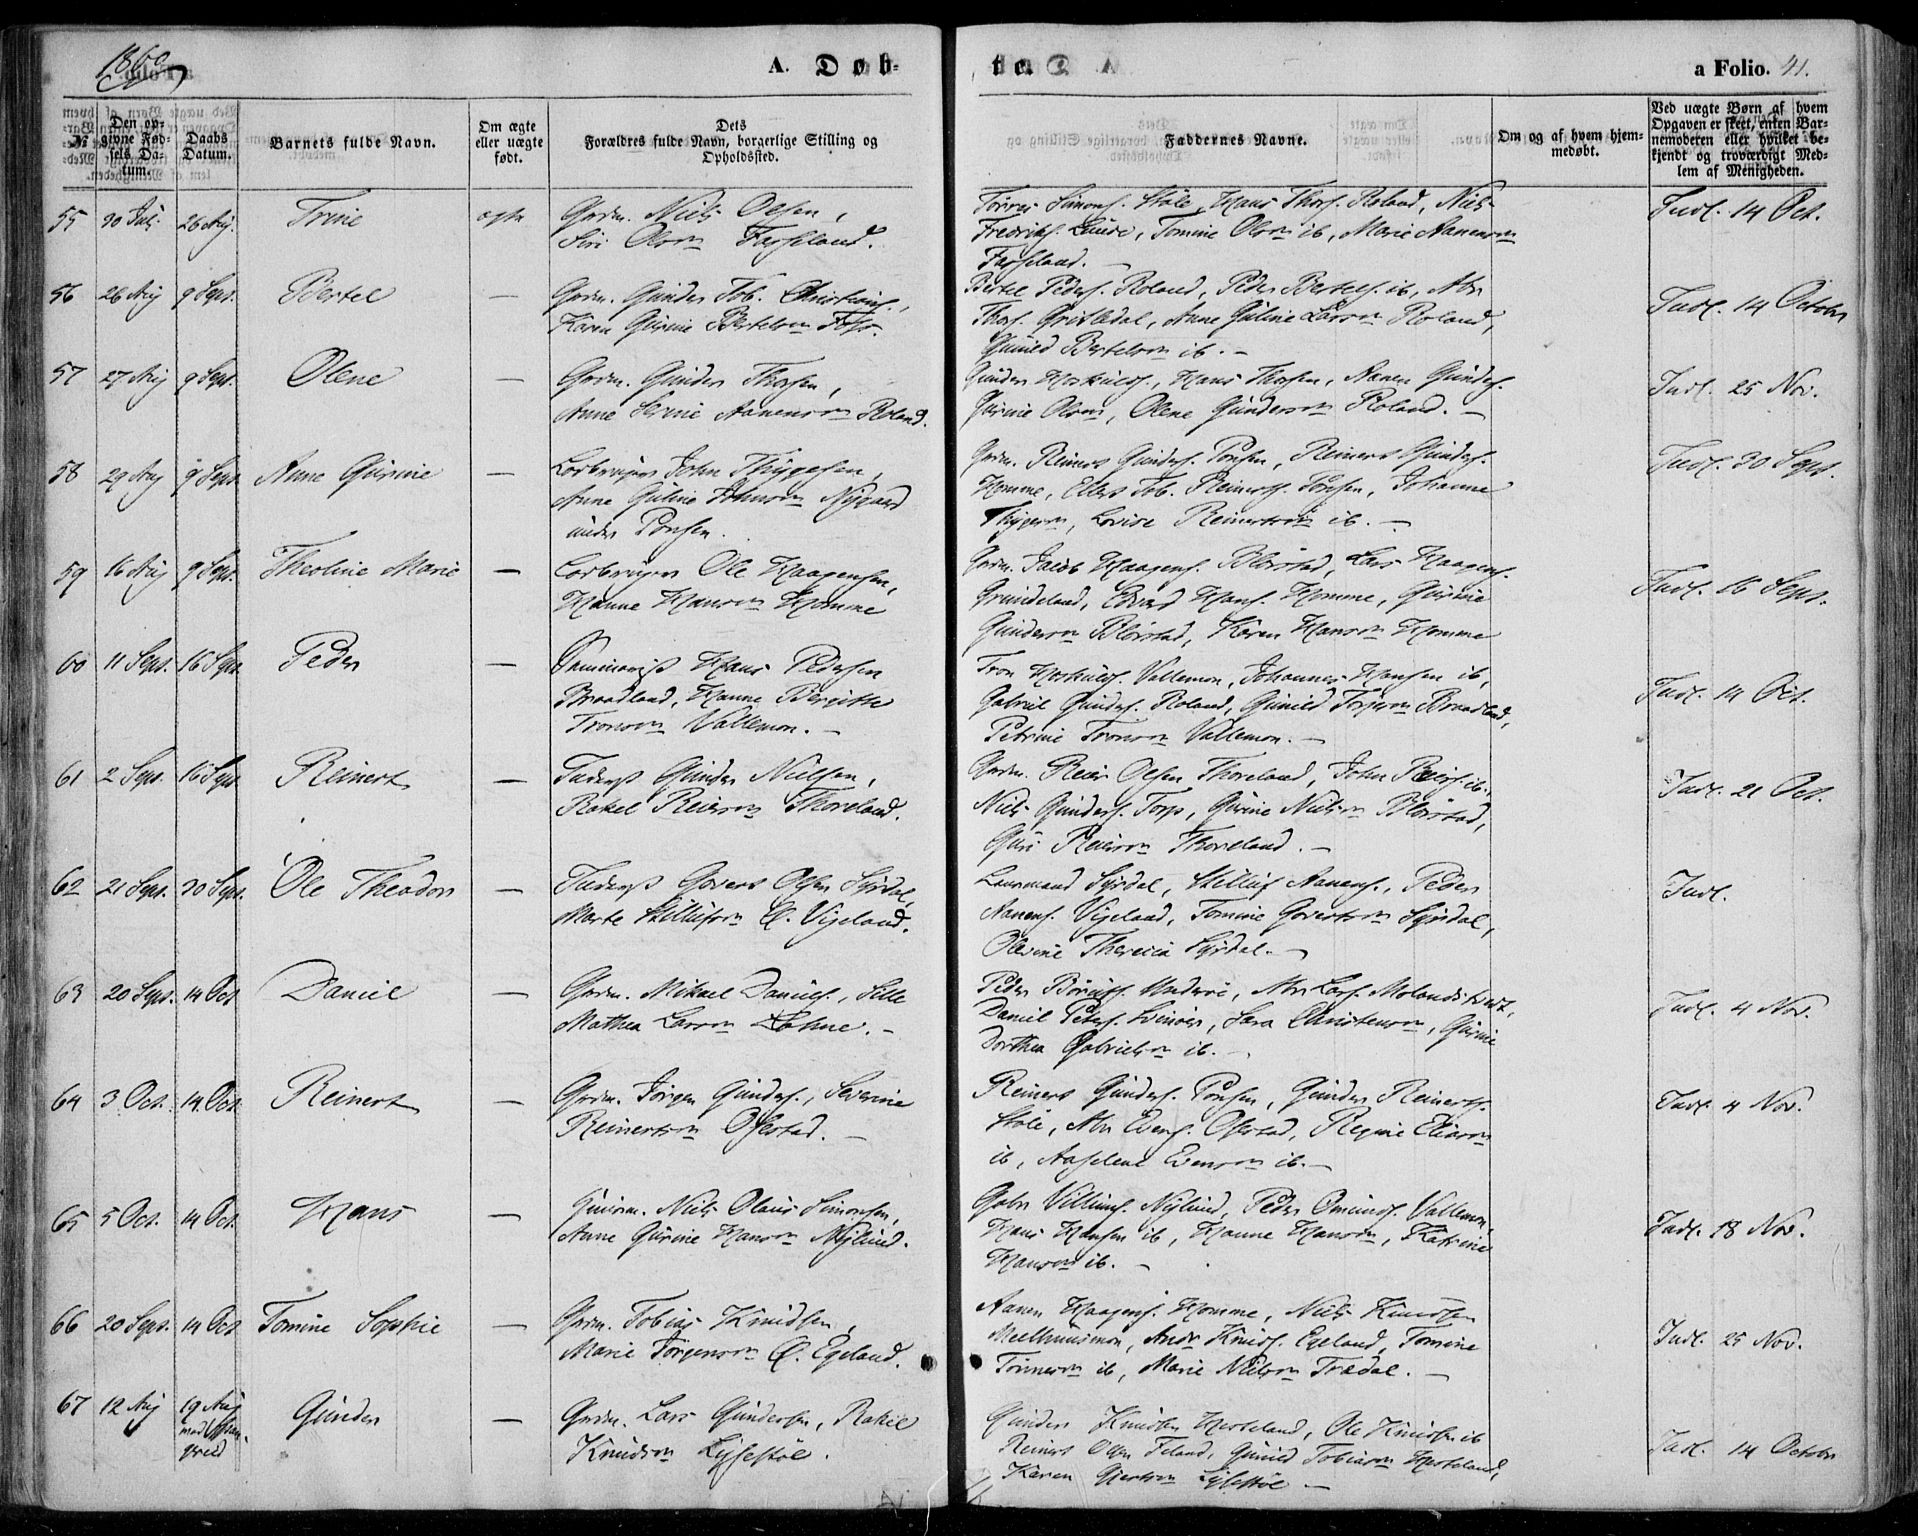 1860
A. Døb-
te.
a Folio. 41.
№
Den op-
givne Fød-
sels Da-
tum.
Daabs
Datum.
Barnets fulde Navn.
Om ægte
eller uægte
født.
Dets
Forældres fulde Navn, borgerlige Stilling og
Opholdssted.
Faddernes Navne.
Om og af hvem hjem-
medøbt.
Ved uægte Børn af hvem
Opgaven er skeet, enten Bar-
nemoderen eller hvilket be-
kjendt og troværdigt Med-
lem af Menigheden.
55 30 Juli 26 Aug. Trine ægte Grdm. Niels Olsen,
Siri Olsdn Farseland.
Simons. Støle, Hans Thors. Roland, Niels
Fredriks. Tomine Olsdn ib, Marie Aanensdn
Farseland. —
Indl. 14 Oct.
56 26 Aug 9 Sept. Bertel — Grdm. Gunder Tob. Christians.,
Karen Gurine Bertelsdn
Bertel Peders. Roland, Peder Bertels. ib, Abr
Thors. Anne Guline Larsdn Roland,
Gunild Bertelsdn ib. —
Indl. 14 October
57 27 Aug 9 Sept. Olene — Grdm. Gunder Thorsen,
Anne Serine Aanensdn Roland.
Gunder Hoskulds., Hans Thorsen, Aanen Gunders.
Gurine Olsdn, Olene Gundersdn Roland. —
Indl. 25 Nov.
58 29 Aug 9 Sept Anne Gurine — Lodbruger John Thygesen,
Anne Guline Johnsdn Nygaard
under Ponsen.
Grdm. Reinert Gunders. Ponsen, Reinert Gunders.
Homme, Ellert Tob. Reinerts. Ponsen, Johanne
Thygesdn, Lovise Reinertsdn ib. —
Indl. 30 Sept.
59 16 Aug 9 Sept. Theoline Marie — Lodbruger Ole Haagensen,
Hanne Hansdn Homme
Grdm. Jacob Haagens. Blørstad, Lars Haagens.
Grundeland, Edvard Hans. Homme, Gurine
Gundersdn Blørstad, Karen Hansdn Homme
Indl. 16 Sept.
60 11 Sept. 16 Sept. Peder — Seminarist Hans Pedersen
Braadland, Hanne Bergitte
Tronsdn Vallemon. —
Tron Hoskulds. Vallemon, Johannes Hansen ib,
Gabriel Gunders. Roland, Gunild Braadland,
Petrine Tronsdn Vallemon. —
Indl. 14 Oct.
61 2 Sept. 16 Sept Reinert — Inderst Gunder Nielsen,
Rakel Reiersdn Thoreland.
Grdm. Reier Olsen Thoreland, John Reiers. ib.
Niels Gunders. Torp, Gurine Nielsdn Blørstad,
Guri Reiersdn Thoreland. —
Indl. 21 Oct.
62 21 Sept. 30 Sept. Ole Theodor — Inderst Govert Olsen Syrdal,
Marte Stillufsdn Ø. Vigeland.
Syrdal, Stilluf Aanens., Peder
Aanens. Vigeland, Tomine Govertsdn Syrdal,
Olevine Theresia Syrdal. —
Indl.
63 20 Sept. 14 Oct Daniel — Grdm. Mikael Daniels., Sille
Mathea Larsdn Løhne. —
Peder Underø, Abr Lars.
Daniel Peters. Svinør, Sara Christensdn, Gurine
Dorthea Gabrielsdn ib. —
Indl. 4 Nov.
64 3 Oct. 14 Oct Reinert — Grdm. Jørgen Gunders., Severine
Reinertsdn Ofestad. —
Reinert Gunders. Ponsen, Gunder Reinerts.
Støle, Abr Evens. Ofestad, Regine Eliasdn
ib, Aaselene Evensdn ib. —
Indl. 4 Nov.
65 5 Oct. 14 Oct. Hans — Niels Olaus Simonsen,
Anne Gurine Hansdn Nylund.
Gabr Villums. Nylund, Peder Omunds. Vallemon,
Hans Hansen ib, Hanne Hansdn, Katrine
Hansdn ib. —
Indl. 18 Nov.
66 20 Sept. 14 Oct Tomine Sophie — Grdm. Tobias Knudsen,
Marie Jørgensdn Ø. Egeland.
Aanen Haagens. Homme, Niels Knudsen
Meelhuusmon, Andr Knuds. Egeland, Tomine
Tønnesdn ib, Marie Nielsdn Trædal. —
Indl. 25 Nov.
67 12 Aug 19 Aug
Gunder — Grdm. Lars Gundersen, Rakel
Knudsdn Lysestøl.
Gunder Knudsen Hesteland, Ole Knudsen ib
Reinert Olsen Feland, Gunild Tobiasdn Hesteland,
Karen Gjertsdn Lysestøl —
Indl. 14 October